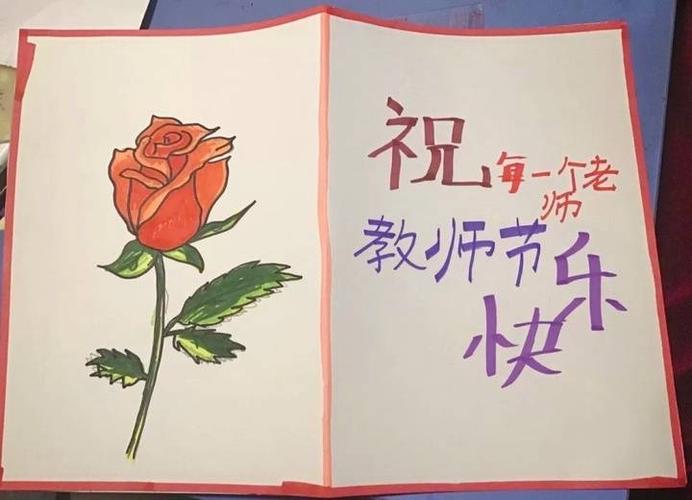 祝每一个老师
教师节快乐